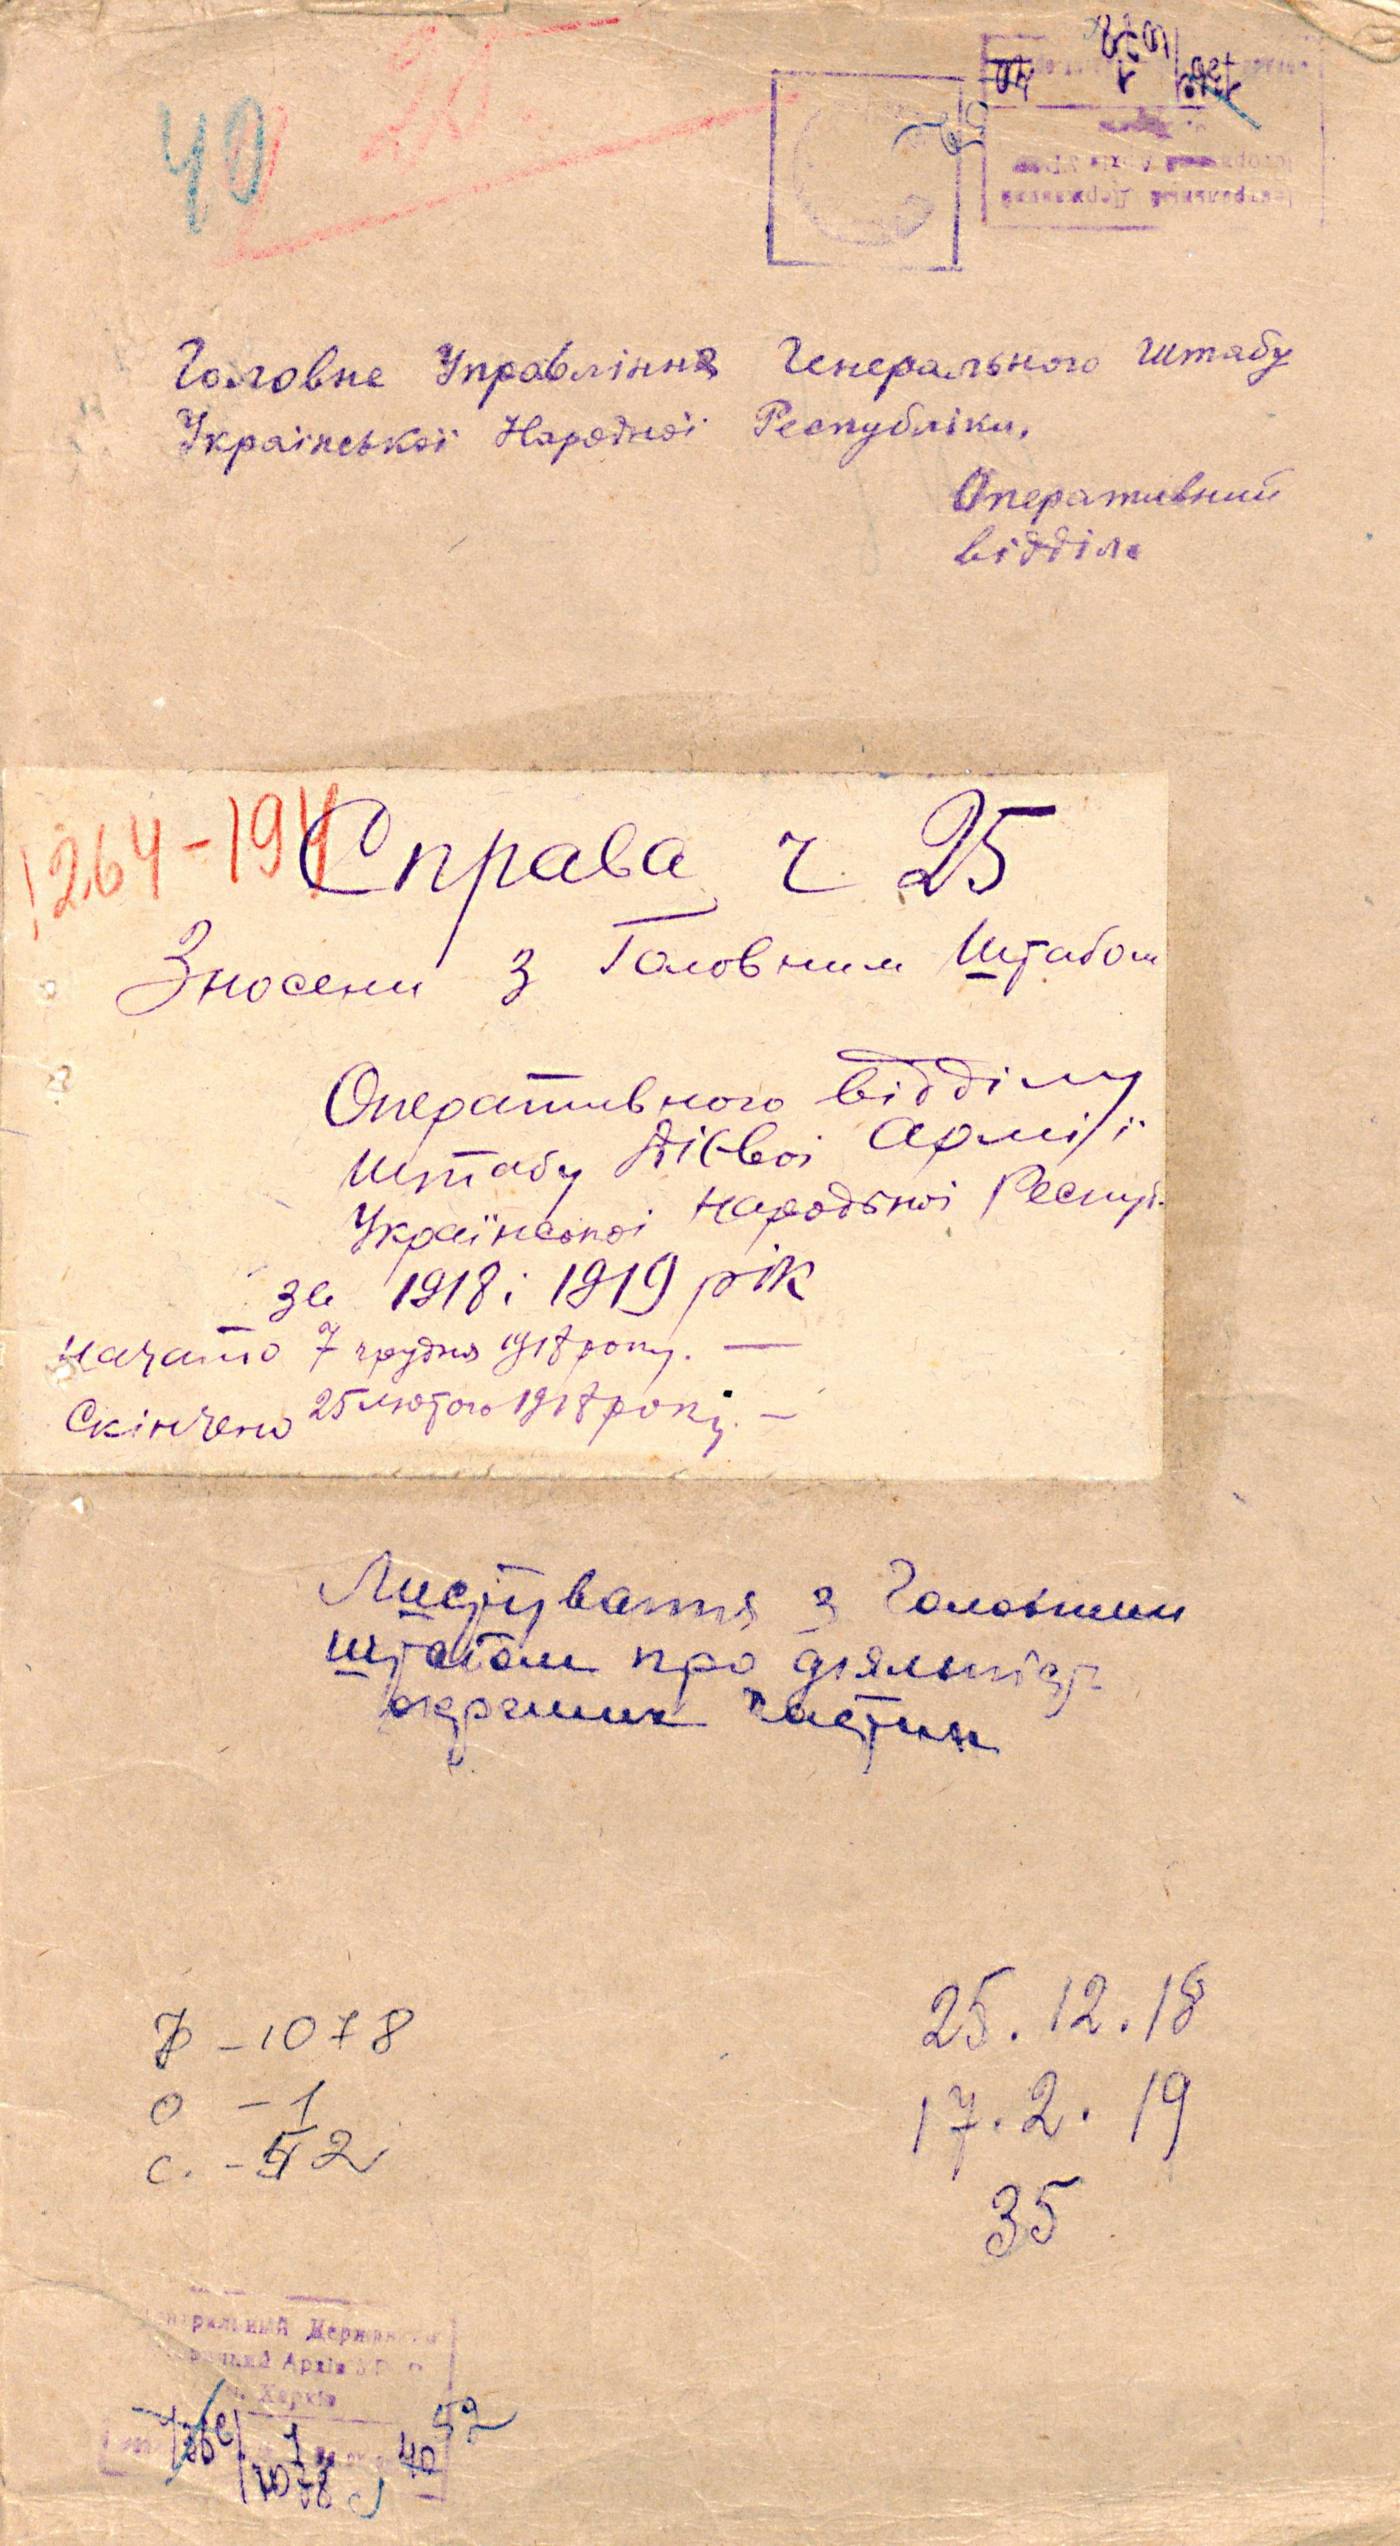 40
25
Головне Управління Генерального Штабу
Української Народної Республіки.
Оперативний
відділ
1264-194
Справа ч 25
Зносени з Головним Штабом
Оперативного відділу
Штабу Дієвої Армії
Української Народньої Респуб.
за 1918 і 1919 рік
Начато 7 грудня 1918 року. —
Скінчено 25 лютого 1918 року. —
Листування з Головним
штабом про діяльність
окремих частин
Ф - 1078
о - 1
с. - 52
25.12.18
17.2.19
35
Центральний Державний
Архів
м. Харків
1
1078
40
52